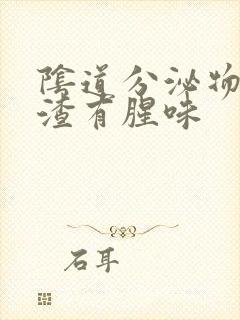 陰道分泌物
渣有腥味
石耳